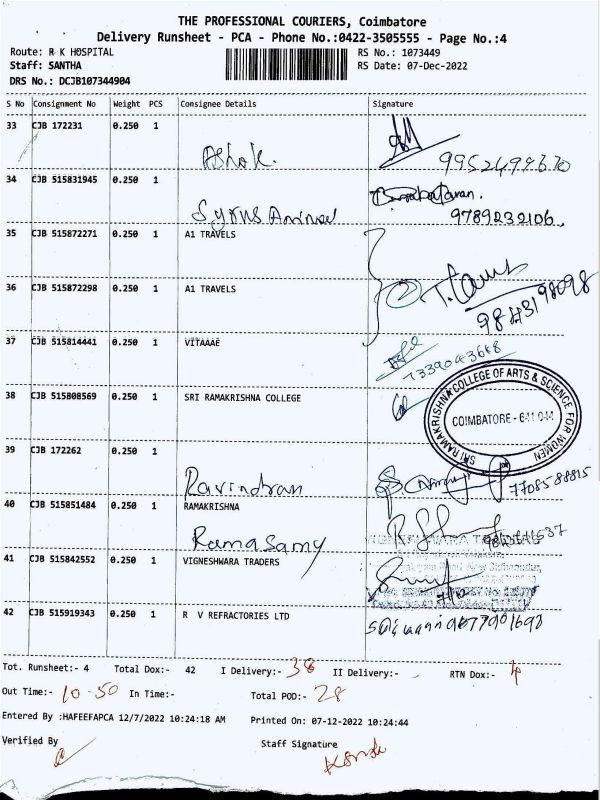 THE PROFESSIONAL COURIERS, Coimbatore
Delivery Runsheet - PCA - Phone No.:0422-3505555 - Page No.:4
Route: R K HOSPITAL RS No.: 1073449
Staff: SANTHA RS Date: 07-Dec-2022
DRS No.: DCJB107344904
S No Consignment No Weight PCS Consignee Details Signature
33 CJB 172231 0.250 1
Ashok.
34 CJB 515831945 0.250 1
9789232106
35 CJB 515872271 0.250 1 A1 TRAVELS
36 CJB 515872298 0.250 1 A1 TRAVELS
9843198098
37 CJB 515814441 0.250 1
7339043668
38 CJB 515808569 0.250 1 SRI RAMAKRISHNA COLLEGE
SRI RAMAKRISHNA COLLEGE OF ARTS & SCIENCE FOR WOMEN
COIMBATORE - 641 044
39 CJB 172262 0.250 1
Ravindran 7708588815
40 CJB 515851484 0.250 1 RAMAKRISHNA
Ramasamy
41 CJB 515842552 0.250 1 VIGNESHWARA TRADERS
42 CJB 515919343 0.250 1 R V REFRACTORIES LTD
Tot. Runsheet:- 4 Total Dox:- 42 I Delivery:- 38 II Delivery:- RTN Dox:- 4
Out Time:- 10-50 In Time:- Total POD:- 28
Entered By :HAFEEFAPCA 12/7/2022 10:24:18 AM Printed On: 07-12-2022 10:24:44
Verified By Staff Signature